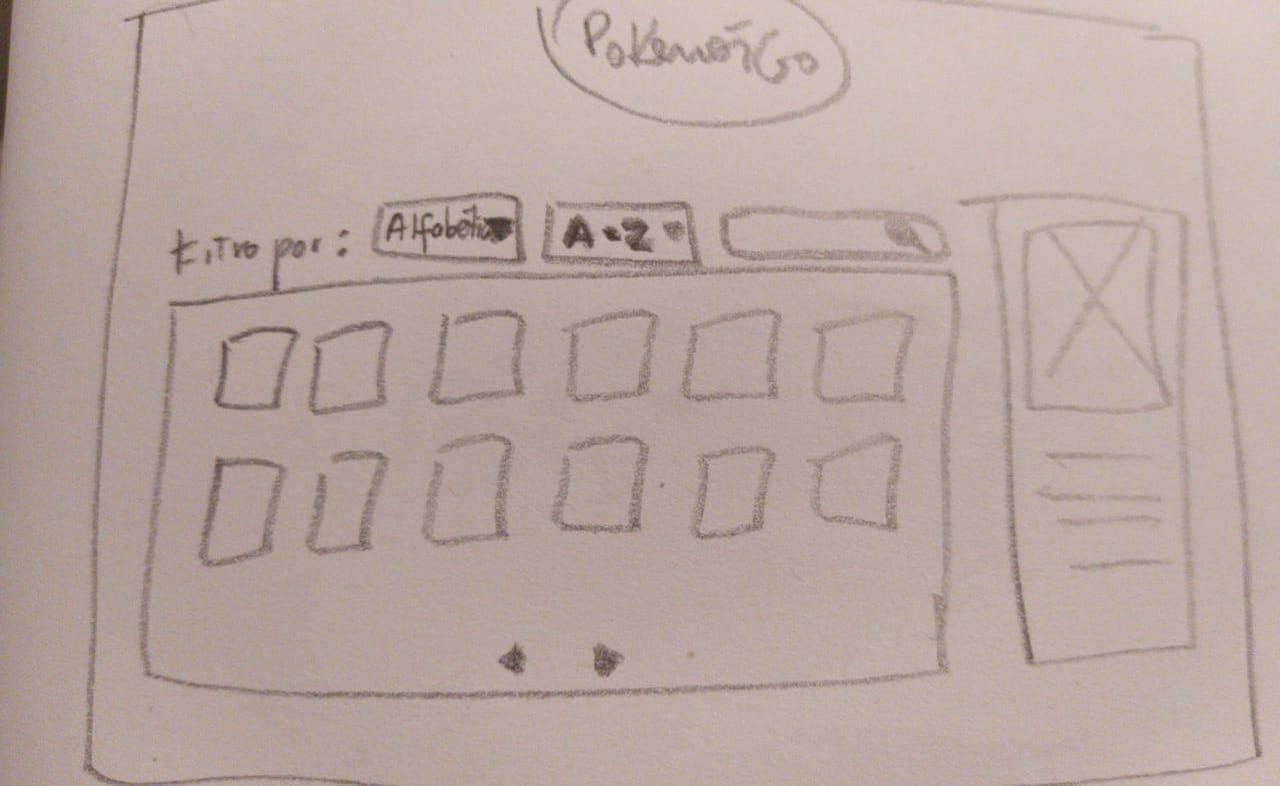 Pokemon Go
Filtro por: Alfabético A-Z